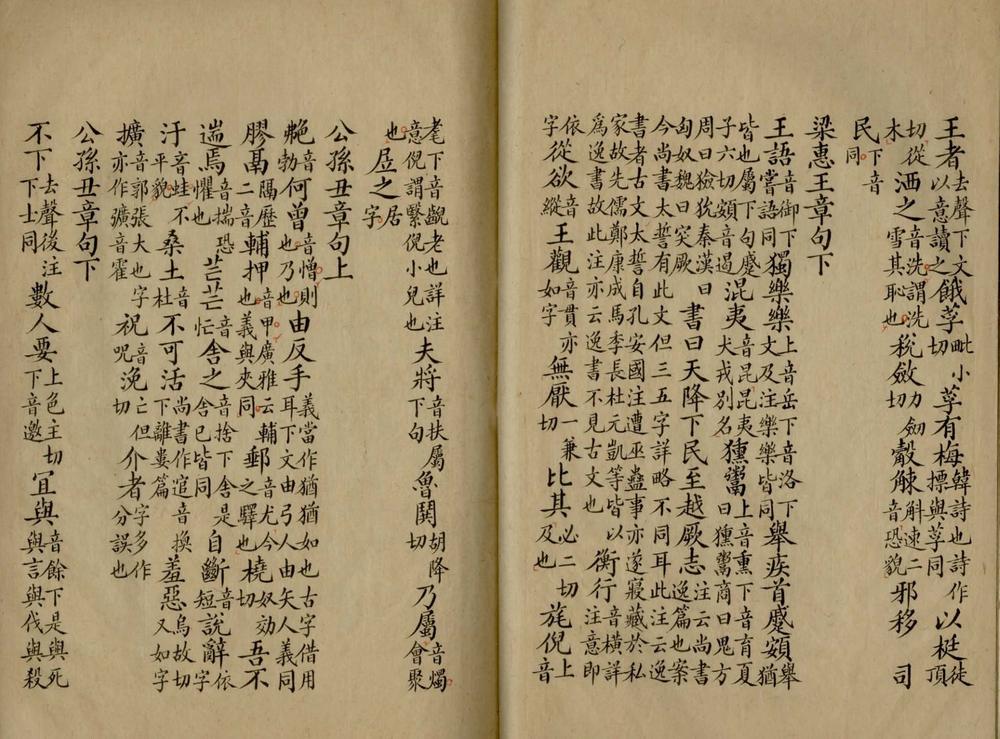 王者去聲下文以意讀之餓莩毗小切莩有梅韓詩也詩作摽與莩同以梃徒頂
切從木洒之音洗謂洗雪其恥也稅斂力劒切觳觫斛速二音恐貌邪移司
民下音同
梁惠王章句下
王語音御下嘗語同獨樂樂上音岳下音洛下文及注樂樂皆同舉疾首蹙頞舉猶
皆也屬下句蹙子六切頞音遏混夷音昆昆夷犬戎別名獯鬻上音熏下音育夏曰獯鬻商曰鬼方
周曰獫狁秦漢曰匈奴魏曰突厥書曰天降下民至越厥志注云尚書逸篇也案
今尚書太誓有此文但三五字詳略不同耳此注云逸書者古文太誓自孔安國注遭巫蠱事亦遂寢藏於私
家故先儒鄭康成馬季長杜元凱等皆以爲逸書故此注亦云逸書不見古文也衡行音橫詳注意即
依字從欲音縱王觀音貫亦如字無厭一兼切比其必二切及也旄倪上音
耄下音齯老也詳注意倪謂繄倪小兒也夫將音扶屬下句魯鬨胡降切乃屬音燭會聚
也㞐之居字
公孫丑章句上
艴音勃何曾音憎則也乃也由反手義當作猶猶如也古字借用耳下文由弓人由矢人義同
膠鬲隔歷二音輔押音甲廣雅云輔也義與夾同郵音尤今之驛也橈奴効切吾不
遄焉音揣恐懼也芒芒音忙舍之音捨下舍是舍已皆同自斷音短說辭依字
汙音蛙不平貌桑土音杜不可活尚書作逭音換下離婁篇同羞惡烏故切又如字
擴音郭張大也字亦作彉音霍祝音呪浼亡但切介者字多作分誤也
公孫丑章句下
不下去聲後注下士同數人要上色主切下音邀宜與音餘下是與死與言與伐與殺